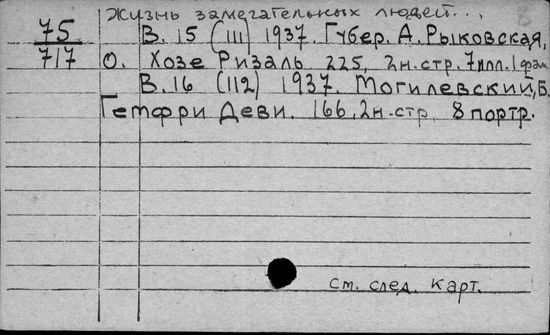 Жизнь замечательных людей...
75 В. 15 (111) 1937. Губер. А. Рыковская,
717 О. Хозе Ризаль 225, 2н.стр. 7илл. 1 фак
В. 16 (112) 1937. Могилевский, Б.
Гемфри Деви. 166, 2н.стр. 8 портр.
См. след. карт.